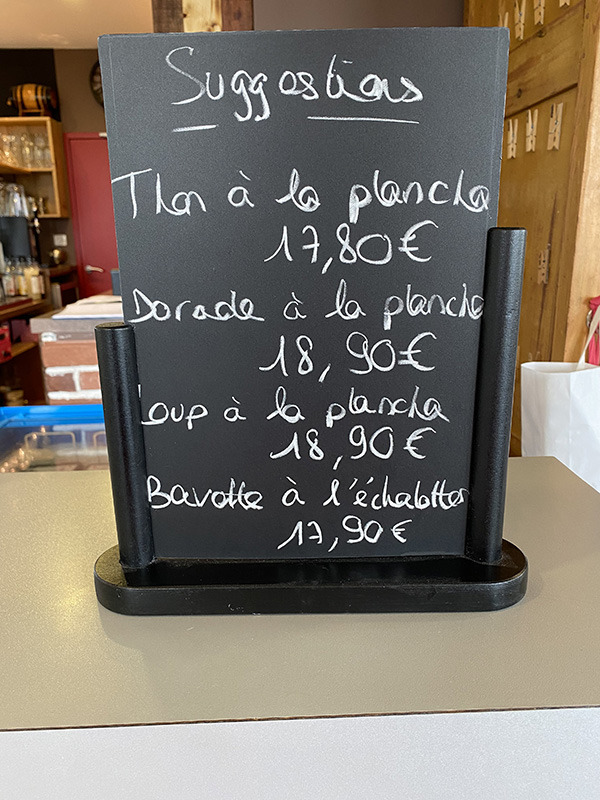 Suggestions
Thon à la plancha
17,80€
Dorade à la plancha
18,90€
Loup à la plancha
18,90€
Bavette à l'échalotte
17,90€